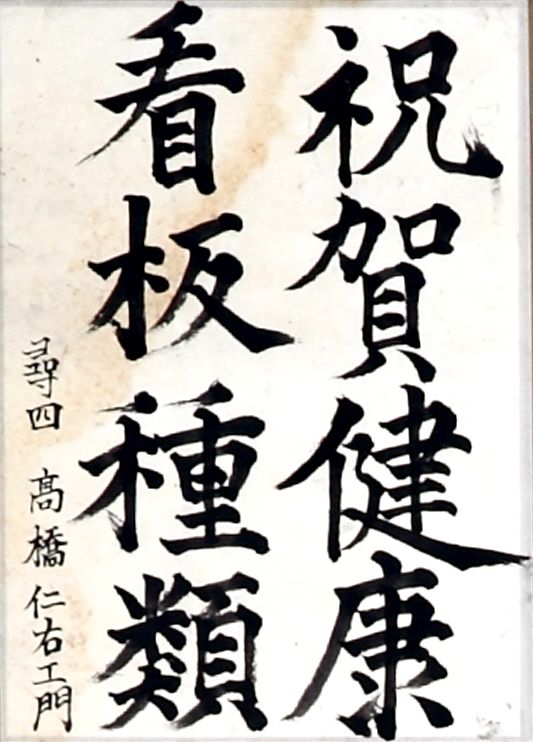 祝賀健康
看板種類
尋四 髙橋仁右エ門